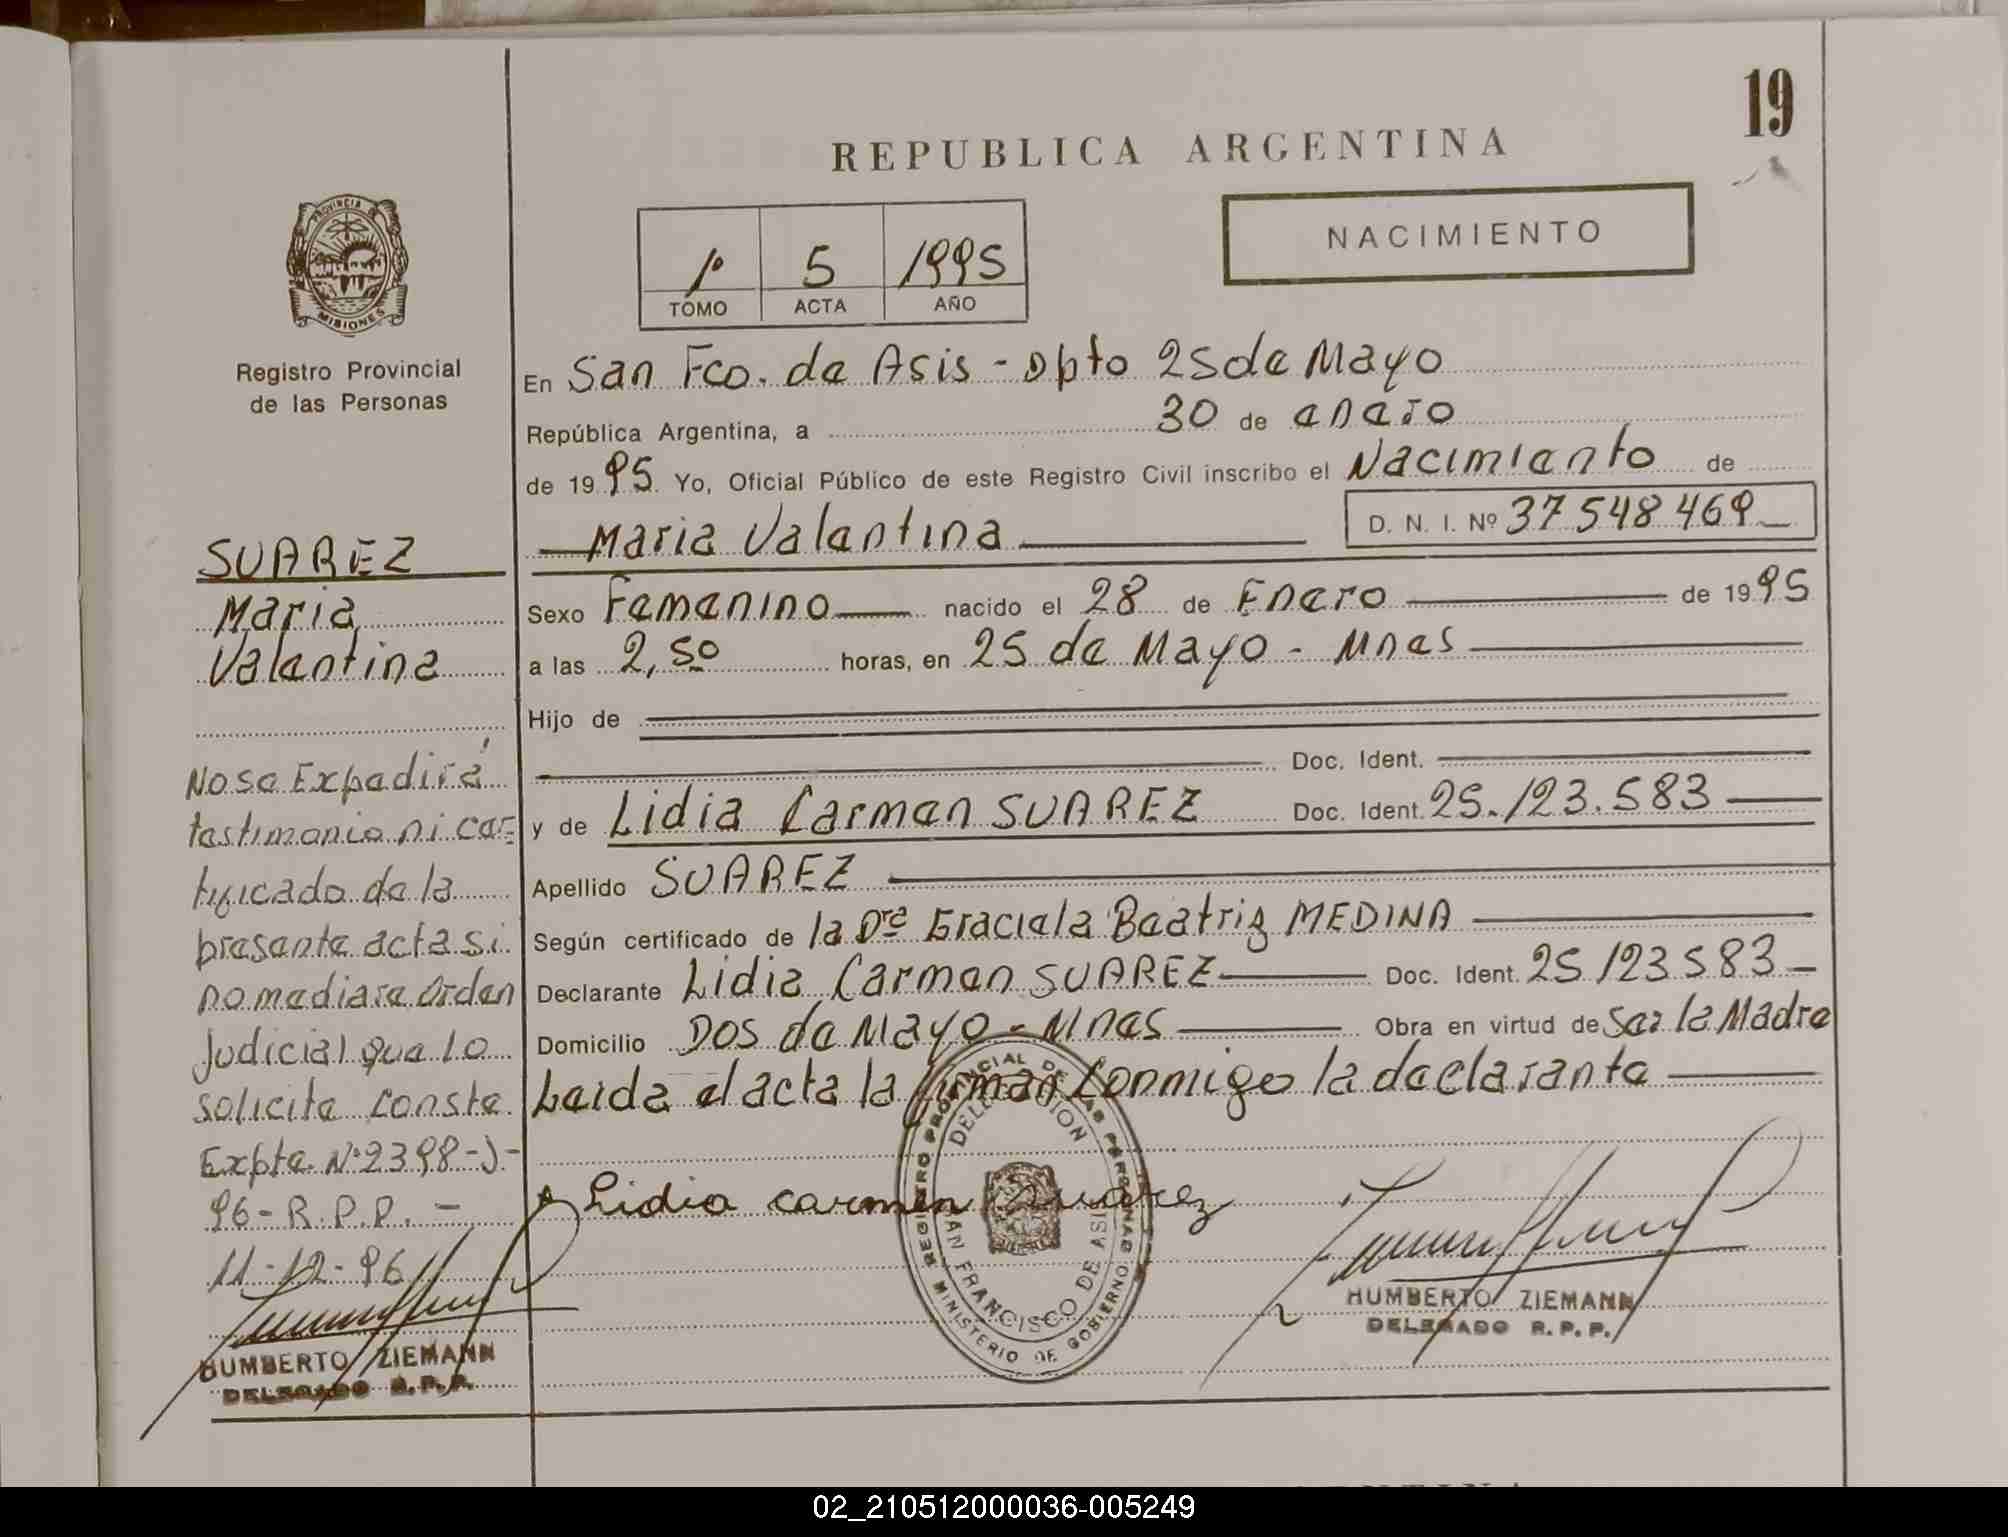 19
REPUBLICA ARGENTINA
NACIMIENTO
1º 5 1995
TOMO ACTA AÑO
PROVINCIA DE
MISIONES
Registro Provincial
de las Personas
SUAREZ
Maria
Valentina
No se Expedirá
testimonio ni cer-
tificado de la
presente acta si
no mediare orden
Judicial que lo
solicite conste
Expte. Nº 2398-J-
96-R.P.P. -
11-12-96
HUMBERTO ZIEMANN
DELEGADO R.P.P.
En San Fco. de Asis - Dpto 25 de Mayo
República Argentina, a 30 de enero
de 1995 Yo, Oficial Público de este Registro Civil inscribo el Nacimiento de
Maria Valentina D. N. I. Nº 37548469
Sexo Femenino nacido el 28 de Enero de 1995
a las 2,50 horas, en 25 de Mayo - Mnes
Hijo de
Doc. Ident.
y de Lidia Carmen SUAREZ Doc. Ident. 25.123.583
Apellido SUAREZ
Según certificado de la Dra Graciela Beatriz MEDINA
Declarante Lidia Carmen SUAREZ Doc. Ident. 25123583
Domicilio Dos de Mayo - Mnes Obra en virtud de Ser la Madre
Leida el acta la firman Conmigo la declarante
Lidia carmen Suarez
REGISTRO PROVINCIAL DE LAS PERSONAS
DELEGACION
SAN FRANCISCO DE ASIS
MINISTERIO DE GOBIERNO
HUMBERTO ZIEMANN
DELEGADO R.P.P.
02_210512000036-005249